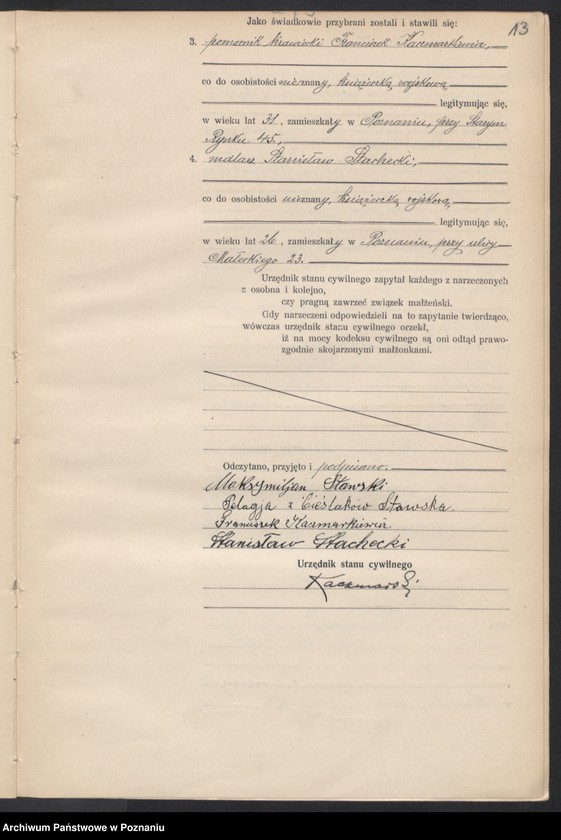 13
Jako świadkowie przybrani zostali i stawili się:
3. pomocnik krawiecki Franciszek Kaczmarkiewicz,
co do osobistości nieznany, książeczką wojskową
legitymując się,
w wieku lat 31, zamieszkały w Poznaniu, przy Starym
Rynku 45,
4. malarz Stanisław Stachecki,
co do osobistości nieznany, książeczką wojskową
legitymując się,
w wieku lat 26, zamieszkały w Poznaniu, przy ulicy
Małeckiego 23.
Urzędnik stanu cywilnego zapytał każdego z narzeczonych
z osobna i kolejno,
czy pragną zawrzeć związek małżeński.
Gdy narzeczeni odpowiedzieli na to zapytanie twierdząco,
wówczas urzędnik stanu cywilnego orzekł,
iż na mocy kodeksu cywilnego są oni odtąd prawo-
zgodnie skojarzonymi małżonkami.
Odczytano, przyjęto i podpisano.
Maksymiljan Stawski
Pelagja z Cieślaków Stawska.
Franciszek Kaczmarkiewicz.
Stanisław Stachecki
Urzędnik stanu cywilnego
Kaczmarski
Archiwum Państwowe w Poznaniu